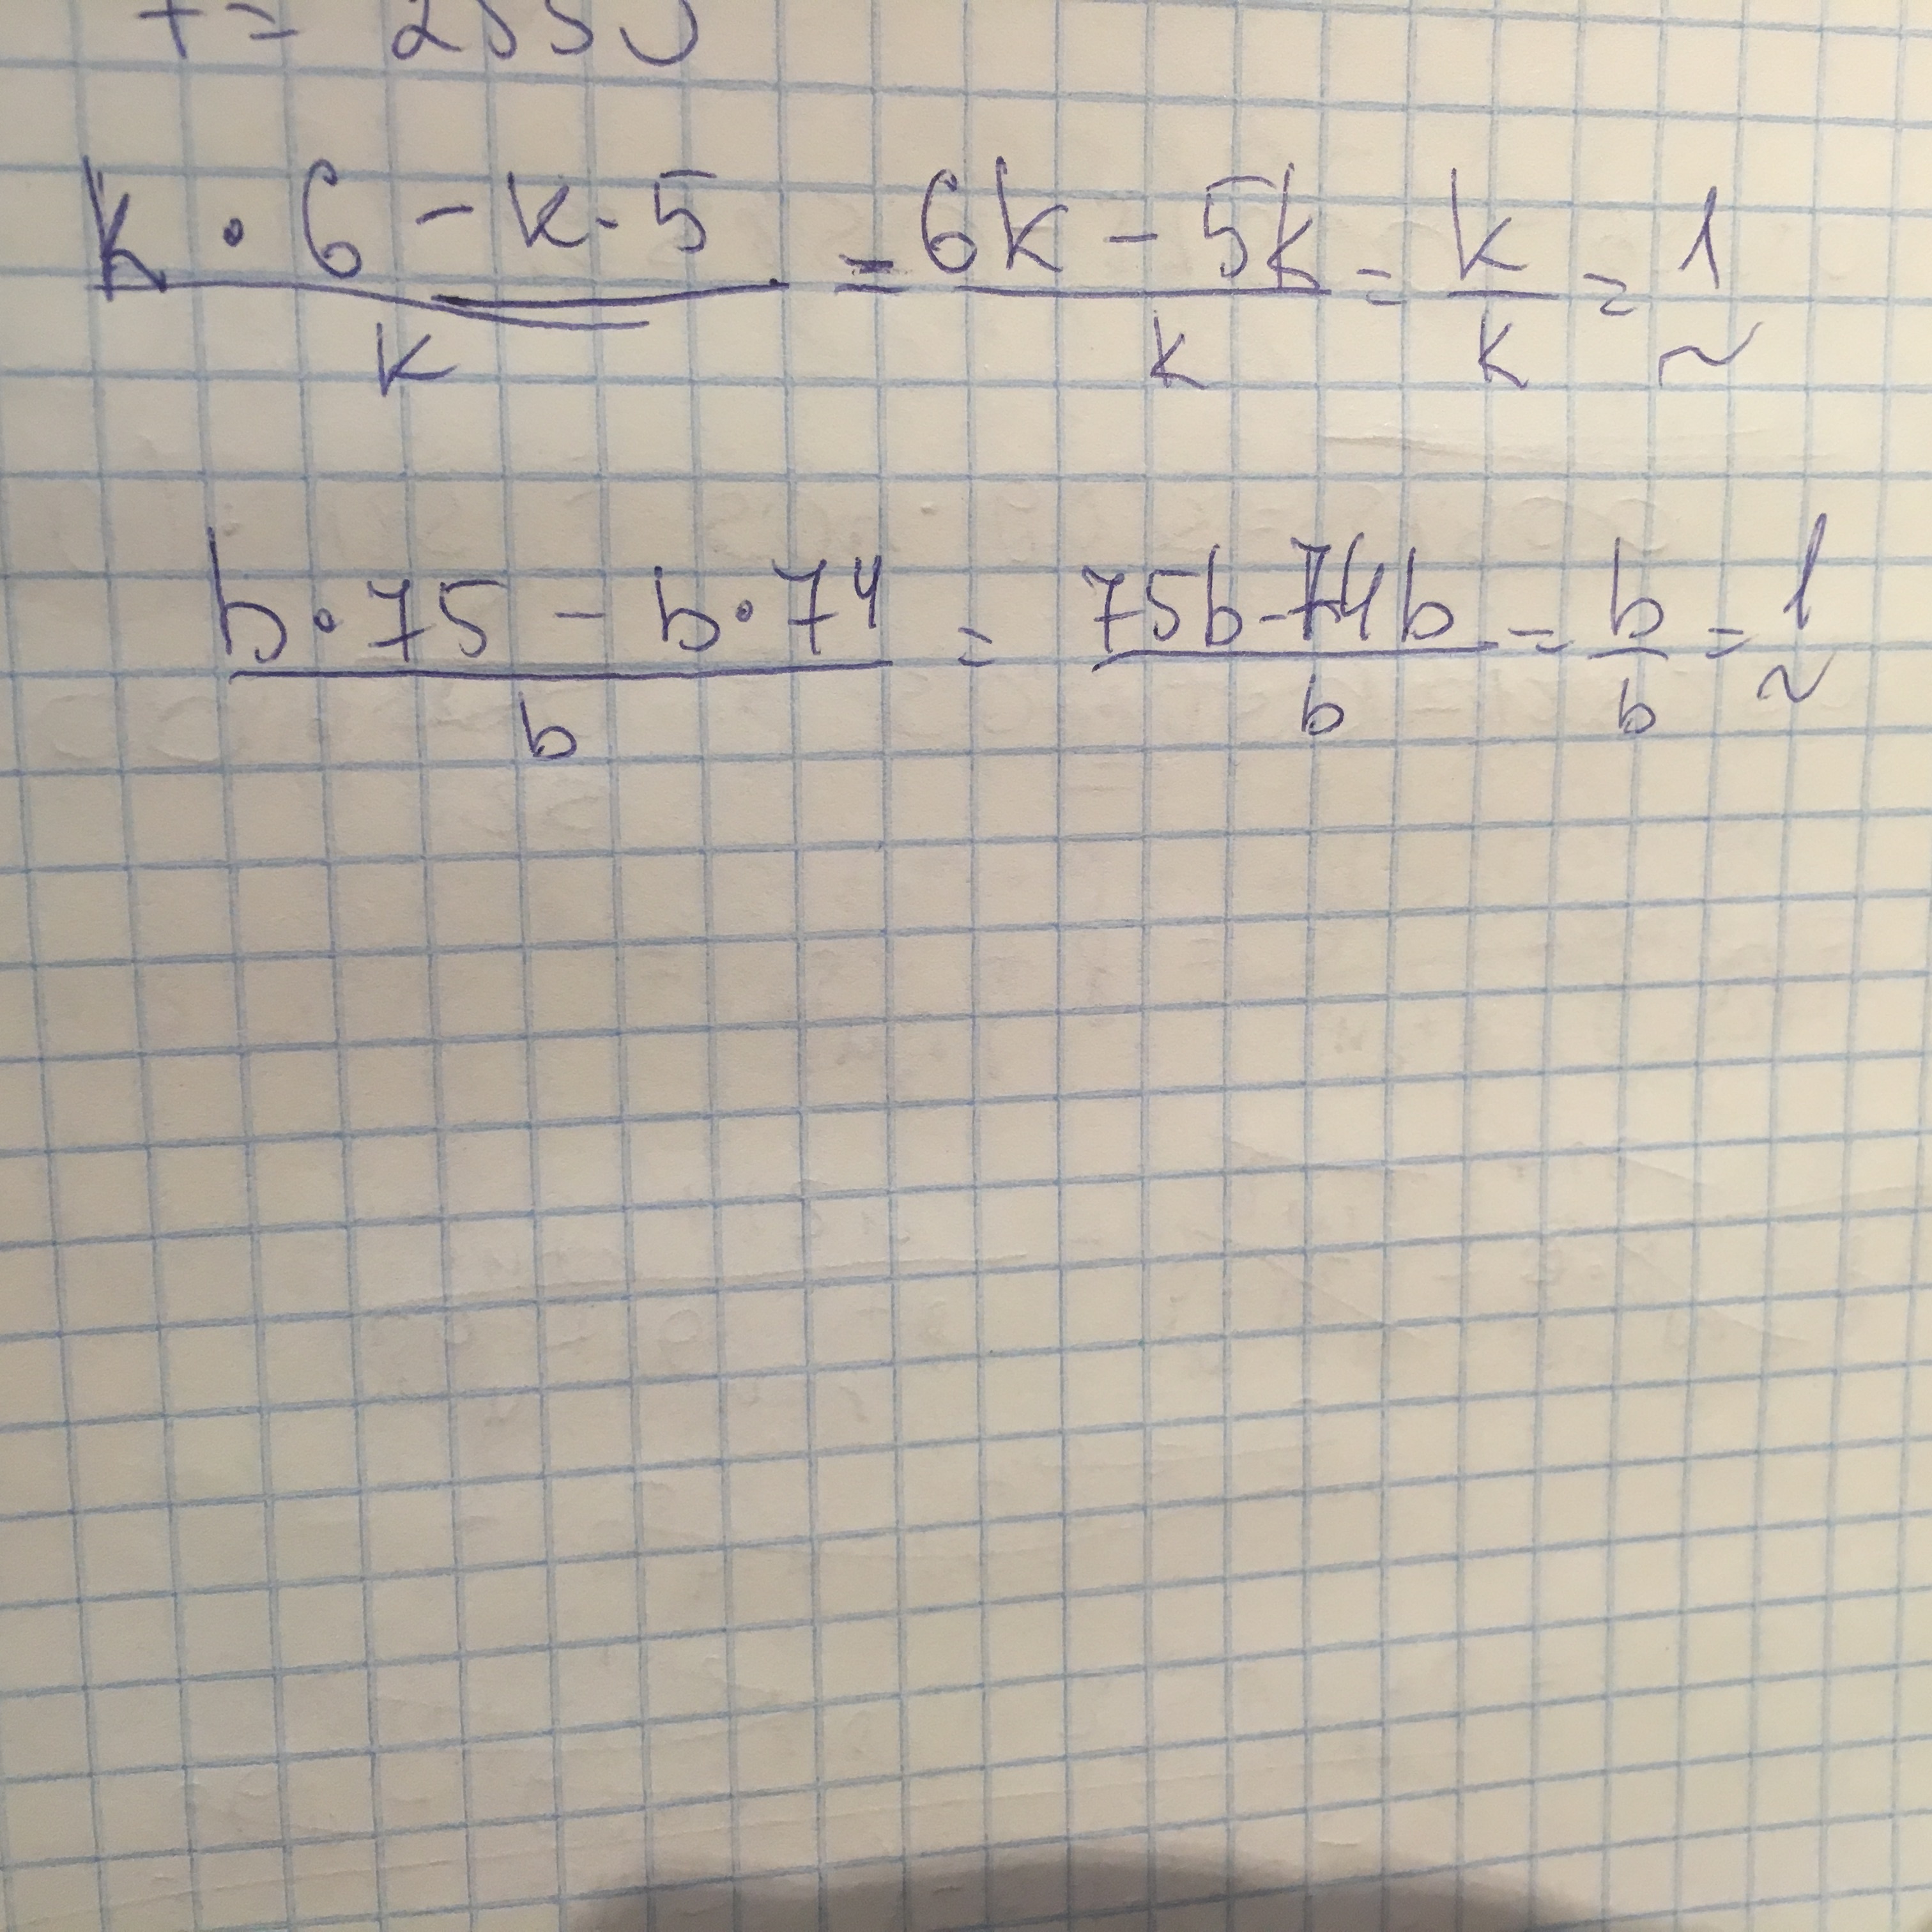 k · 6 - k · 5 / k = 6k - 5k / k = k / k = 1
b · 75 - b · 74 / b = 75b - 74b / b = b / b = 1